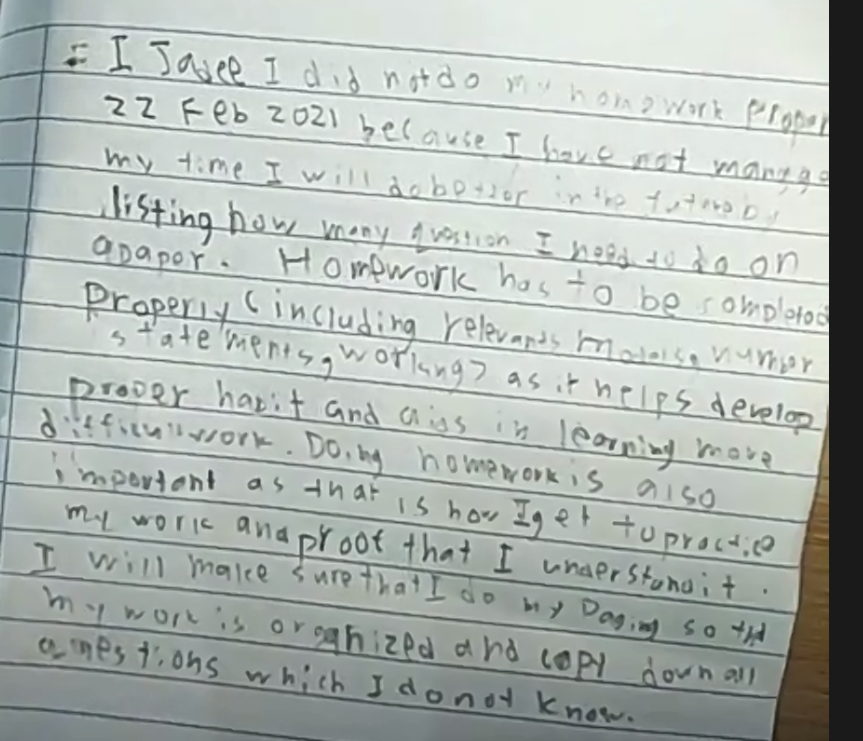 I Jaycee I did not do my homework proper
22 Feb 2021 because I have not manage
my time I will do better in the future by
listing how many question I need to do on
a paper. Homework has to be completed
Properly (including relevants number
statements, workings) as it helps develop
proper habit and aids in learning more
difficult work. Doing homework is also
important as that is how I get to practice
my work and proof that I understand it.
I will make sure that I do my Paging so tht
my work is organized and copy down all
questions which I do not know.